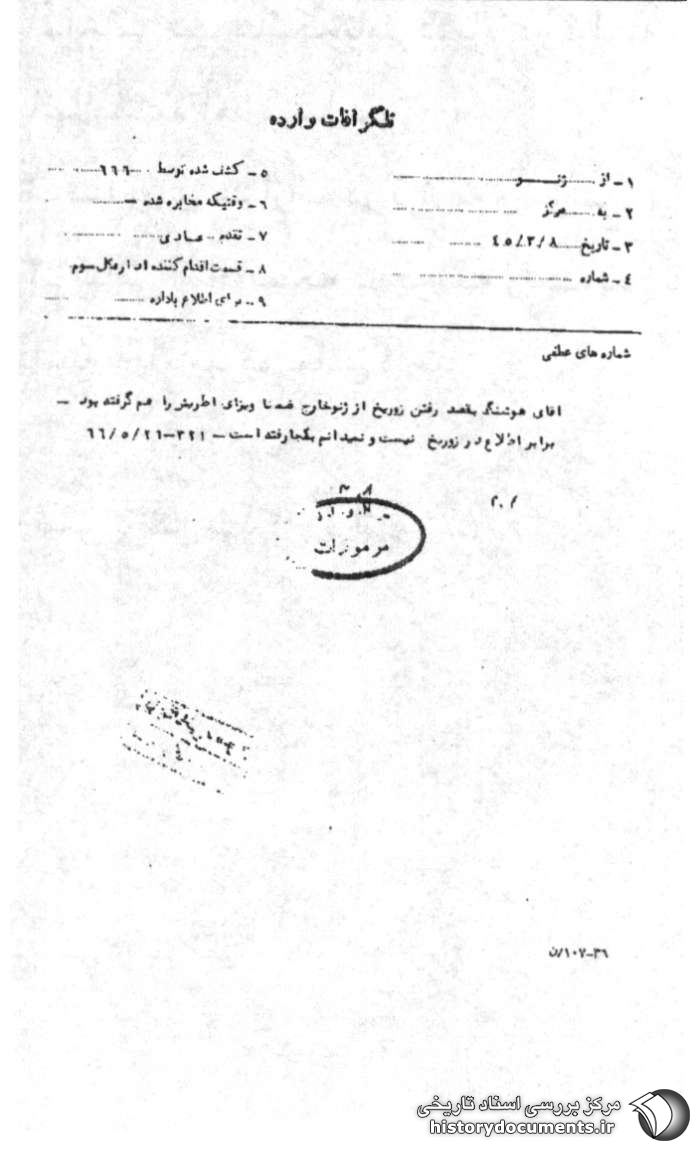 تلگرافات وارده
۱ - از ......ژنـــو
۲ - به ......مرکز
۳ - تاریخ ......۴۵/۳/۸
۴ - شماره
۵ - کشف شده توسط ......۶۶۶
۶ - وقتیکه مخابره شده -
۷ - تقدم عادی
۸ - قسمت اقدام کننده اداره کل سوم
۹ - برای اطلاع باداره
شماره های عطفی
اقای هوشنگ بقصد رفتن زوریخ از ژنو خارج ضمنا ویزای اطریش را هم گرفته بود -
برابر اطلاع در زوریخ نیست و نمیدانم بکجا رفته است - ۳۲۱-۶۶/۵/۲۶
مرموزات
۳۶-۱۰۷/ن
مرکز بررسی اسناد تاریخی
historydocuments.ir